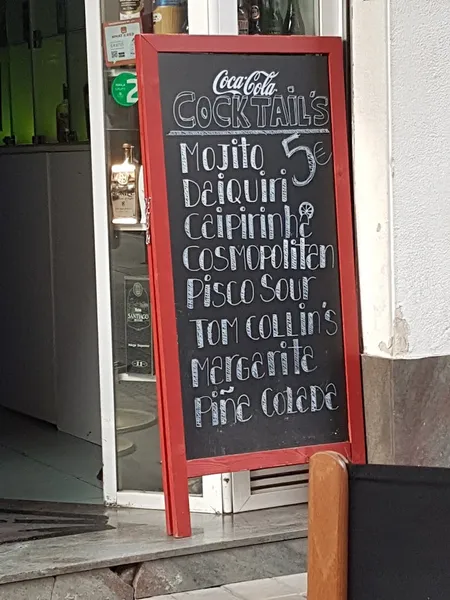 Coca-Cola
COCKTAIL'S
5€
MOJITO
DAIQUIRI
CAIPIRINHA
COSMOPOLITAN
PISCO SOUR
TOM COLLIN'S
MARGARITA
PIÑA COLADA
2
SANTIAGO